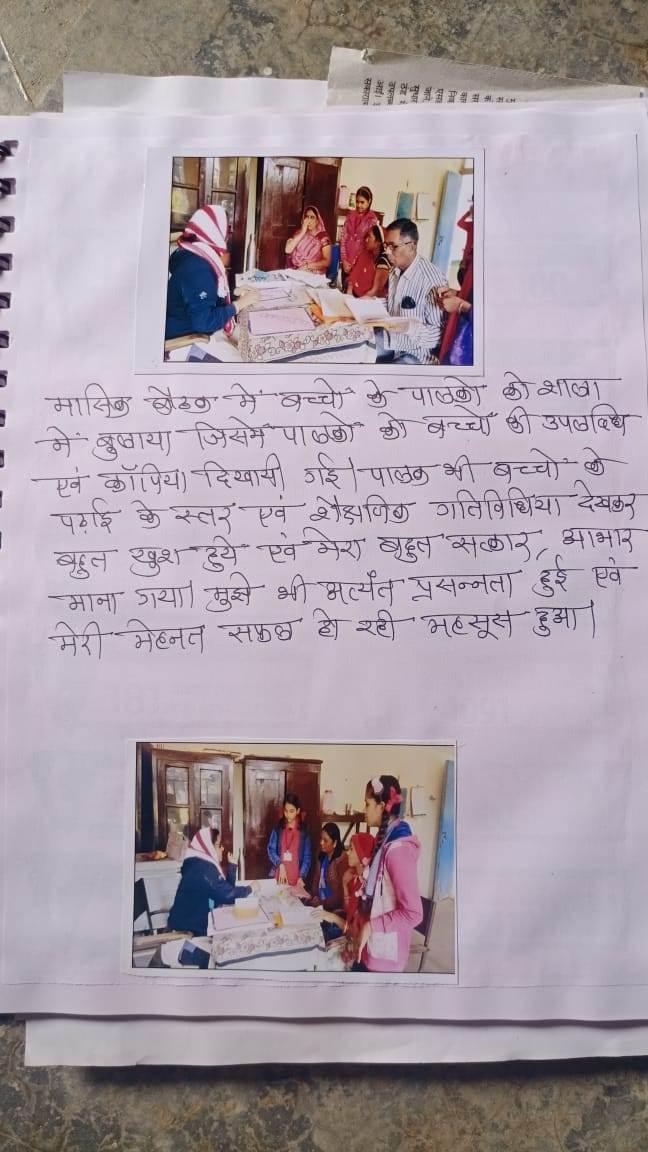 मासिक बैठक में बच्चों के पालकों को शाला
में बुलाया जिसमें पालकों को बच्चों की उपलब्धि
एवं कॉपिया दिखायी गई। पालक भी बच्चों के
पढ़ाई के स्तर एवं शैक्षणिक गतिविधिया देखकर
बहुत खुश हुये एवं मेरा बहुत सत्कार, आभार
माना गया। मुझे भी अत्यंत प्रसन्नता हुई एवं
मेरी मेहनत सफल हो रही महसूस हुआ।